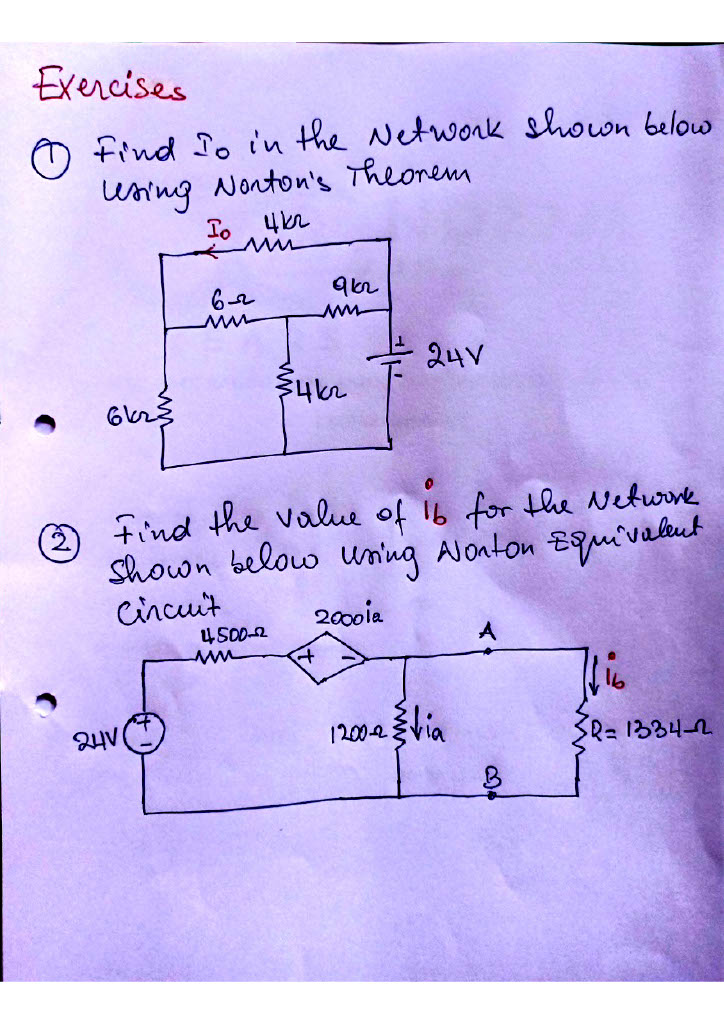 Exercises
① Find Io in the Network shown below
using Norton's Theorem
Io 4kΩ
6Ω 9kΩ
+ 24V
-
6kΩ 4kΩ
② Find the value of ib for the Network
shown below using Norton Equivalent
Circuit
4500Ω 2000ia A
+ - ib
24V + - 1200Ω ia R= 1334Ω
B